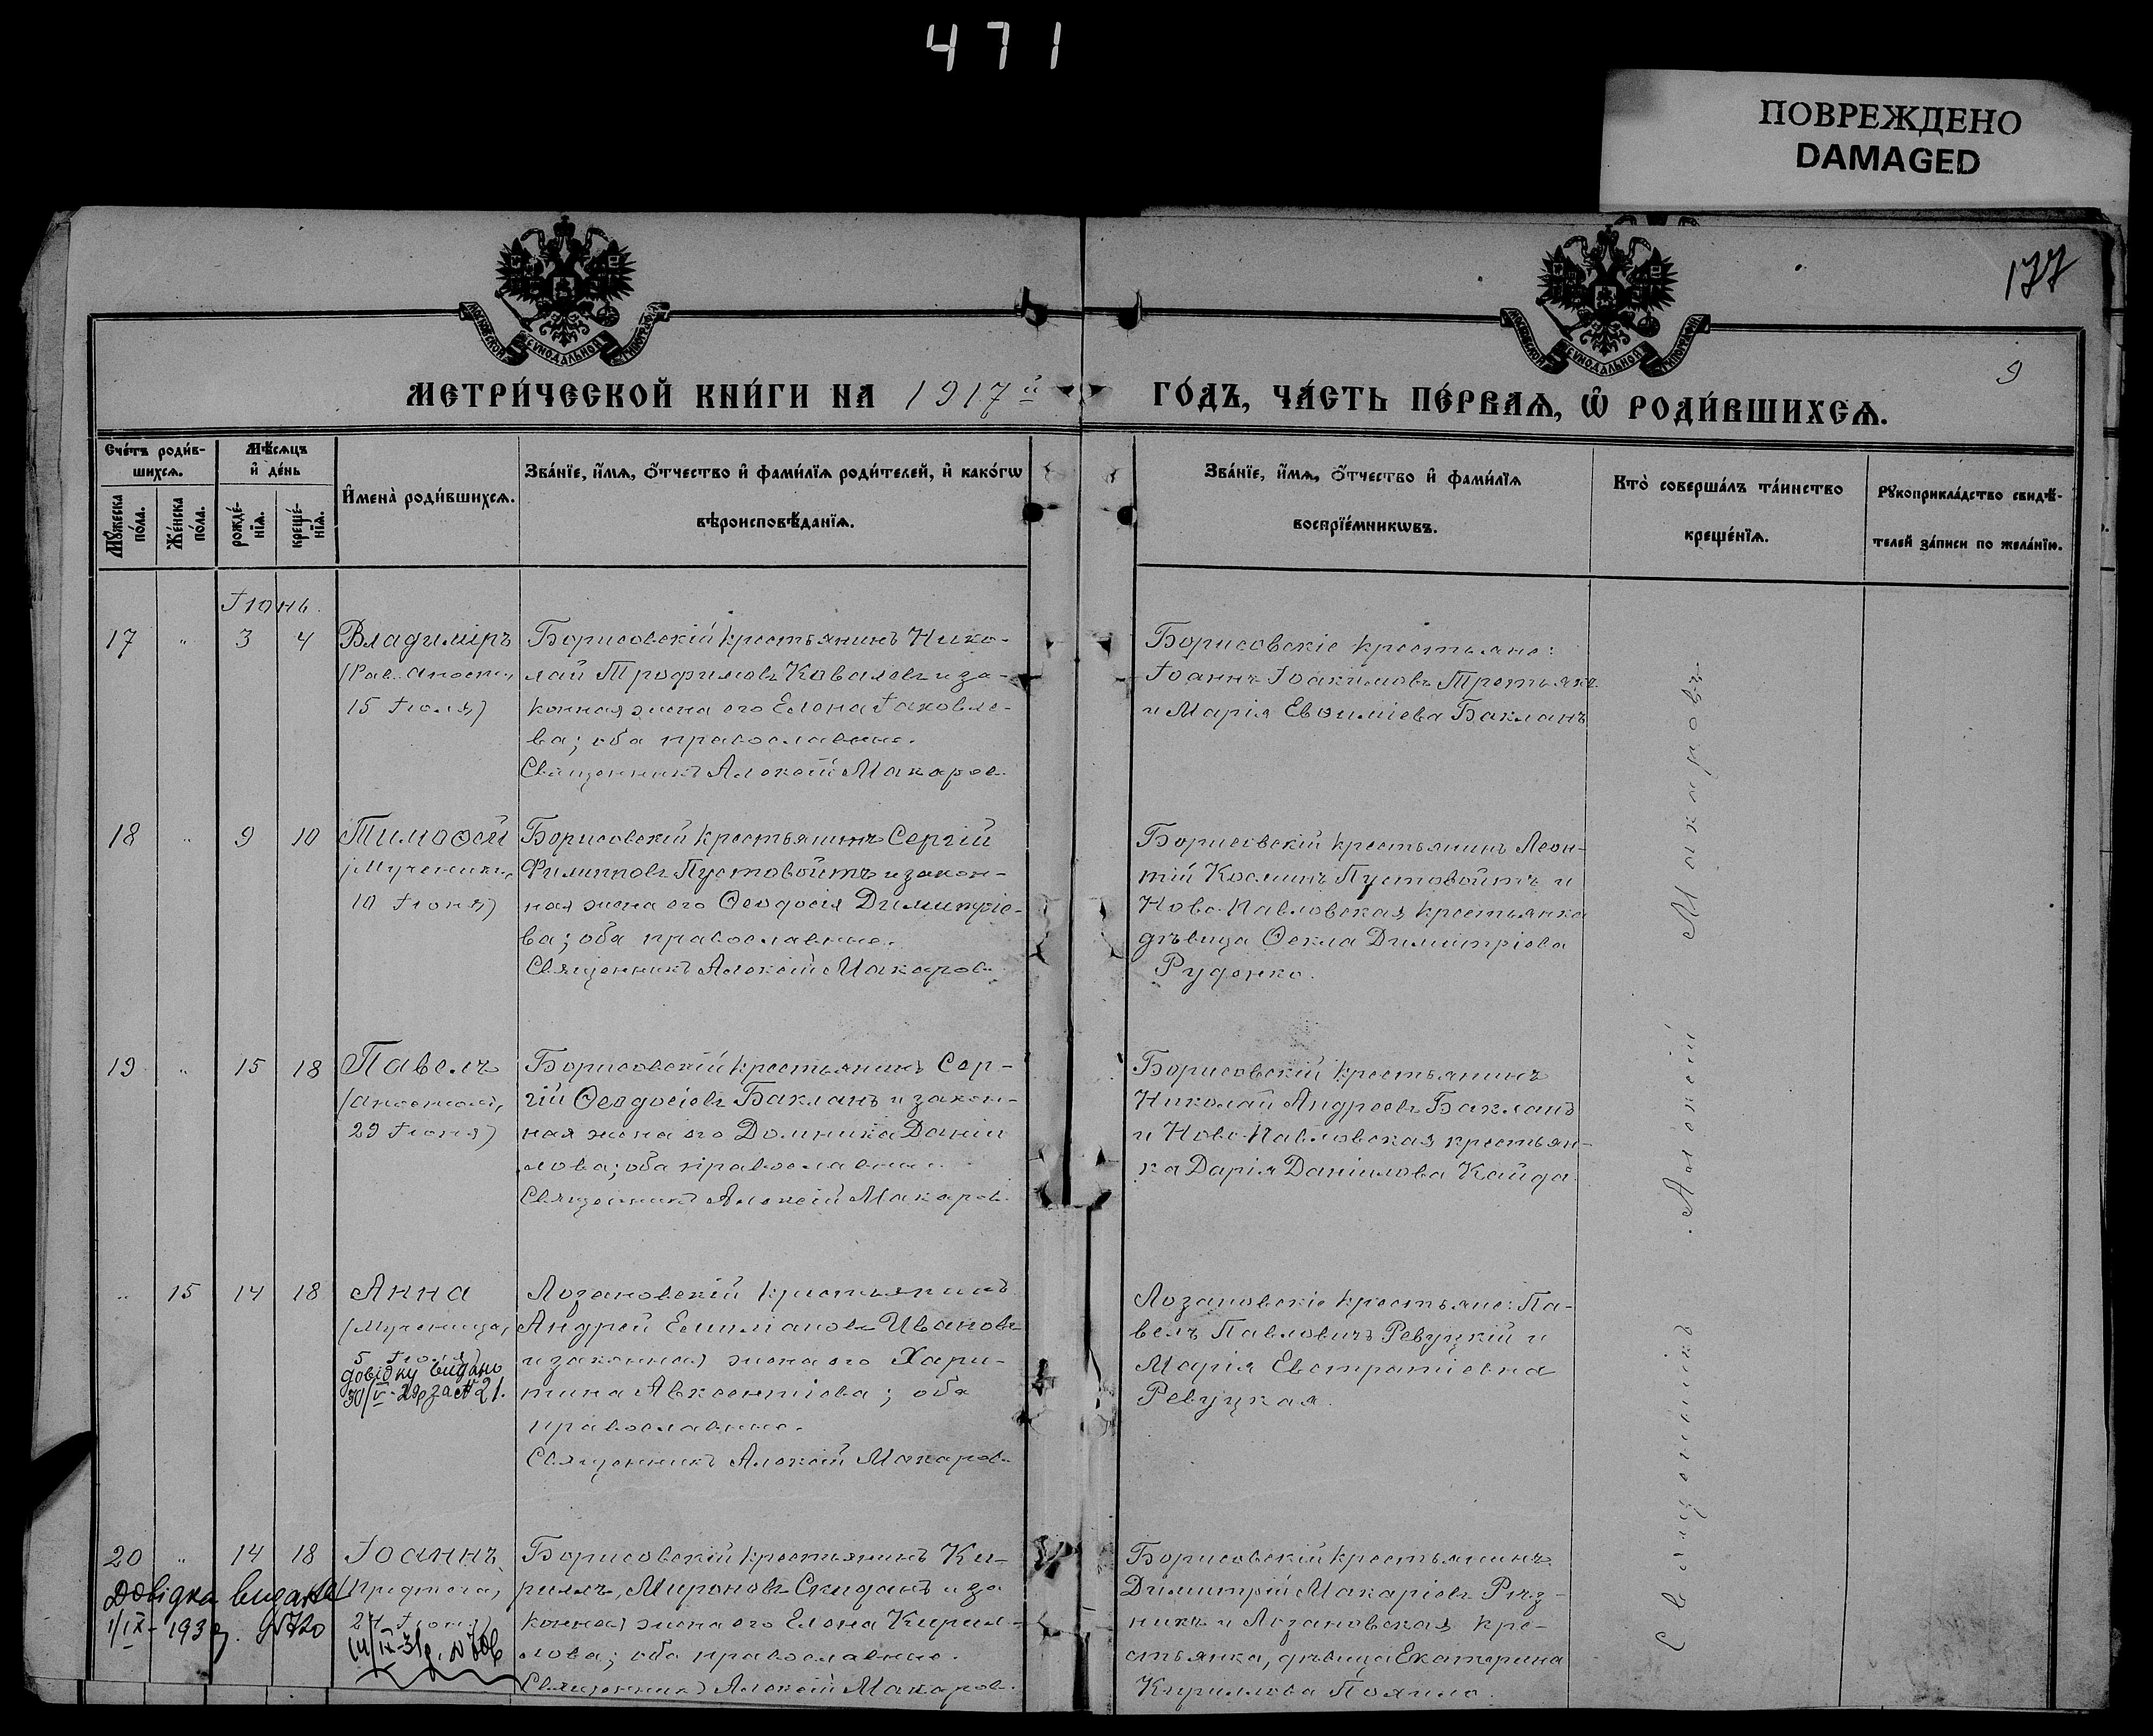 471
ПОВРЕЖДЕНО
DAMAGED
177
МОСКОВСКОЙ СѴНОДАЛЬНОЙ ТИПОГРАФІИ
МОСКОВСКОЙ СѴНОДАЛЬНОЙ ТИПОГРАФІИ
9
МЕТРИ́ЧЕСКОЙ КНИ́ГИ НА 1917й
ГО́ДЪ, ЧА́СТЬ ПЕ́РВАѦ, Ѡ҆ РОДИ́ВШИХСѦ.
Сче́тъ роди́в-
шихсѧ.
Мꙋ́жеска по́ла.
Же́нска по́ла.
Мѣ́сѧцъ
и҆ де́нь
рожде́-
нїѧ.
креще́-
нїѧ.
И҆мена̀ роди́вшихсѧ.
Зва́нїе, и҆́мѧ, ѻ҆́тчество и҆ фами́лїѧ роди́телей, и҆ како́гѡ
вѣроисповѣ́данїѧ.
Зва́нїе, и҆́мѧ, ѻ҆́тчество и҆ фами́лїѧ
воспрїе́мникѡвъ.
Кто̀ соверша́лъ та́инство
креще́нїѧ.
Рꙋкоприкла́дство свидѣ́-
телей за́писи по жела́нїю.
Іюнь.
17 " 3 4 Владиміръ
(Рав. апост.,
15 Іюля)
Борисовскій крестьянинъ Нико-
лай Трофимовъ Ковалевъ и за-
конная жена его Елена Іаковле-
ва; оба православные.
Священникъ Алексій Макаровъ
Борисовскіе крестьяне:
Іоаннъ Іоакимовъ Третьякъ
и Марія Евѳиміева Бакланъ
18 " 9 10 Тимоѳей
(Мученикъ,
10 Іюня)
Борисовскій крестьянинъ Сергій
Филипповъ Пустовойтъ и закон-
ная жена его Ѳеодосія Димитріе-
ва; оба православные.
Священникъ Алексій Макаровъ
Борисовскій крестьянинъ Леон-
тій Косминъ Пустовойтъ и
Ново-Павловская крестьянка
дѣвица Ѳекла Димитріева
Руденко.
19 " 15 18 Павелъ
(апостолъ,
29 Іюня)
Борисовскій крестьянинъ Сер-
гій Ѳеодосіевъ Бакланъ и закон-
ная жена его Домника Даніи
лова; оба православные.
Священникъ Алексій Макаровъ
Борисовскій крестьянинъ
Николай Андреевъ Бакланъ
и Ново-Павловская крестьян-
ка Дарія Даніилова Кайда
" 15 14 18 Анна
(Мученица,
5 Іюля)
довідку видано
30/V-29р за № 21.
Лозановскій крестьянинъ
Андрей Емиліановъ Ивановъ
и законная жена его Хари-
тина Авксентіева; оба
православные.
Священникъ Алексій Макаровъ
Лозановскіе крестьяне: Па-
велъ Павловичъ Ревуцкій и
Марія Евстратіевна
Ревуцкая.
20 " 14 18 Іоаннъ
(Предтеча,
24 Іюня)
Довідка видана
1/IX-193 р. №720
14/IX-31р.
Борисовскій крестьянинъ Ки-
риллъ Мироновъ Скиданъ и за
конная жена его Елена Кирил-
лова; оба православные.
Священникъ Алексій Макаровъ.
Борисовскій крестьянинъ
Димитрій Макаріевъ Рѣз-
никъ и Лозановская кре-
стьянка, дѣвица Екатерина
Кириллова Похило.
Священникъ Алексій Макаровъ